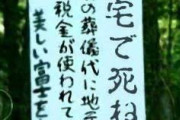 宅で死ね
の葬儀代に地元
税金が使われて
美しい富士を